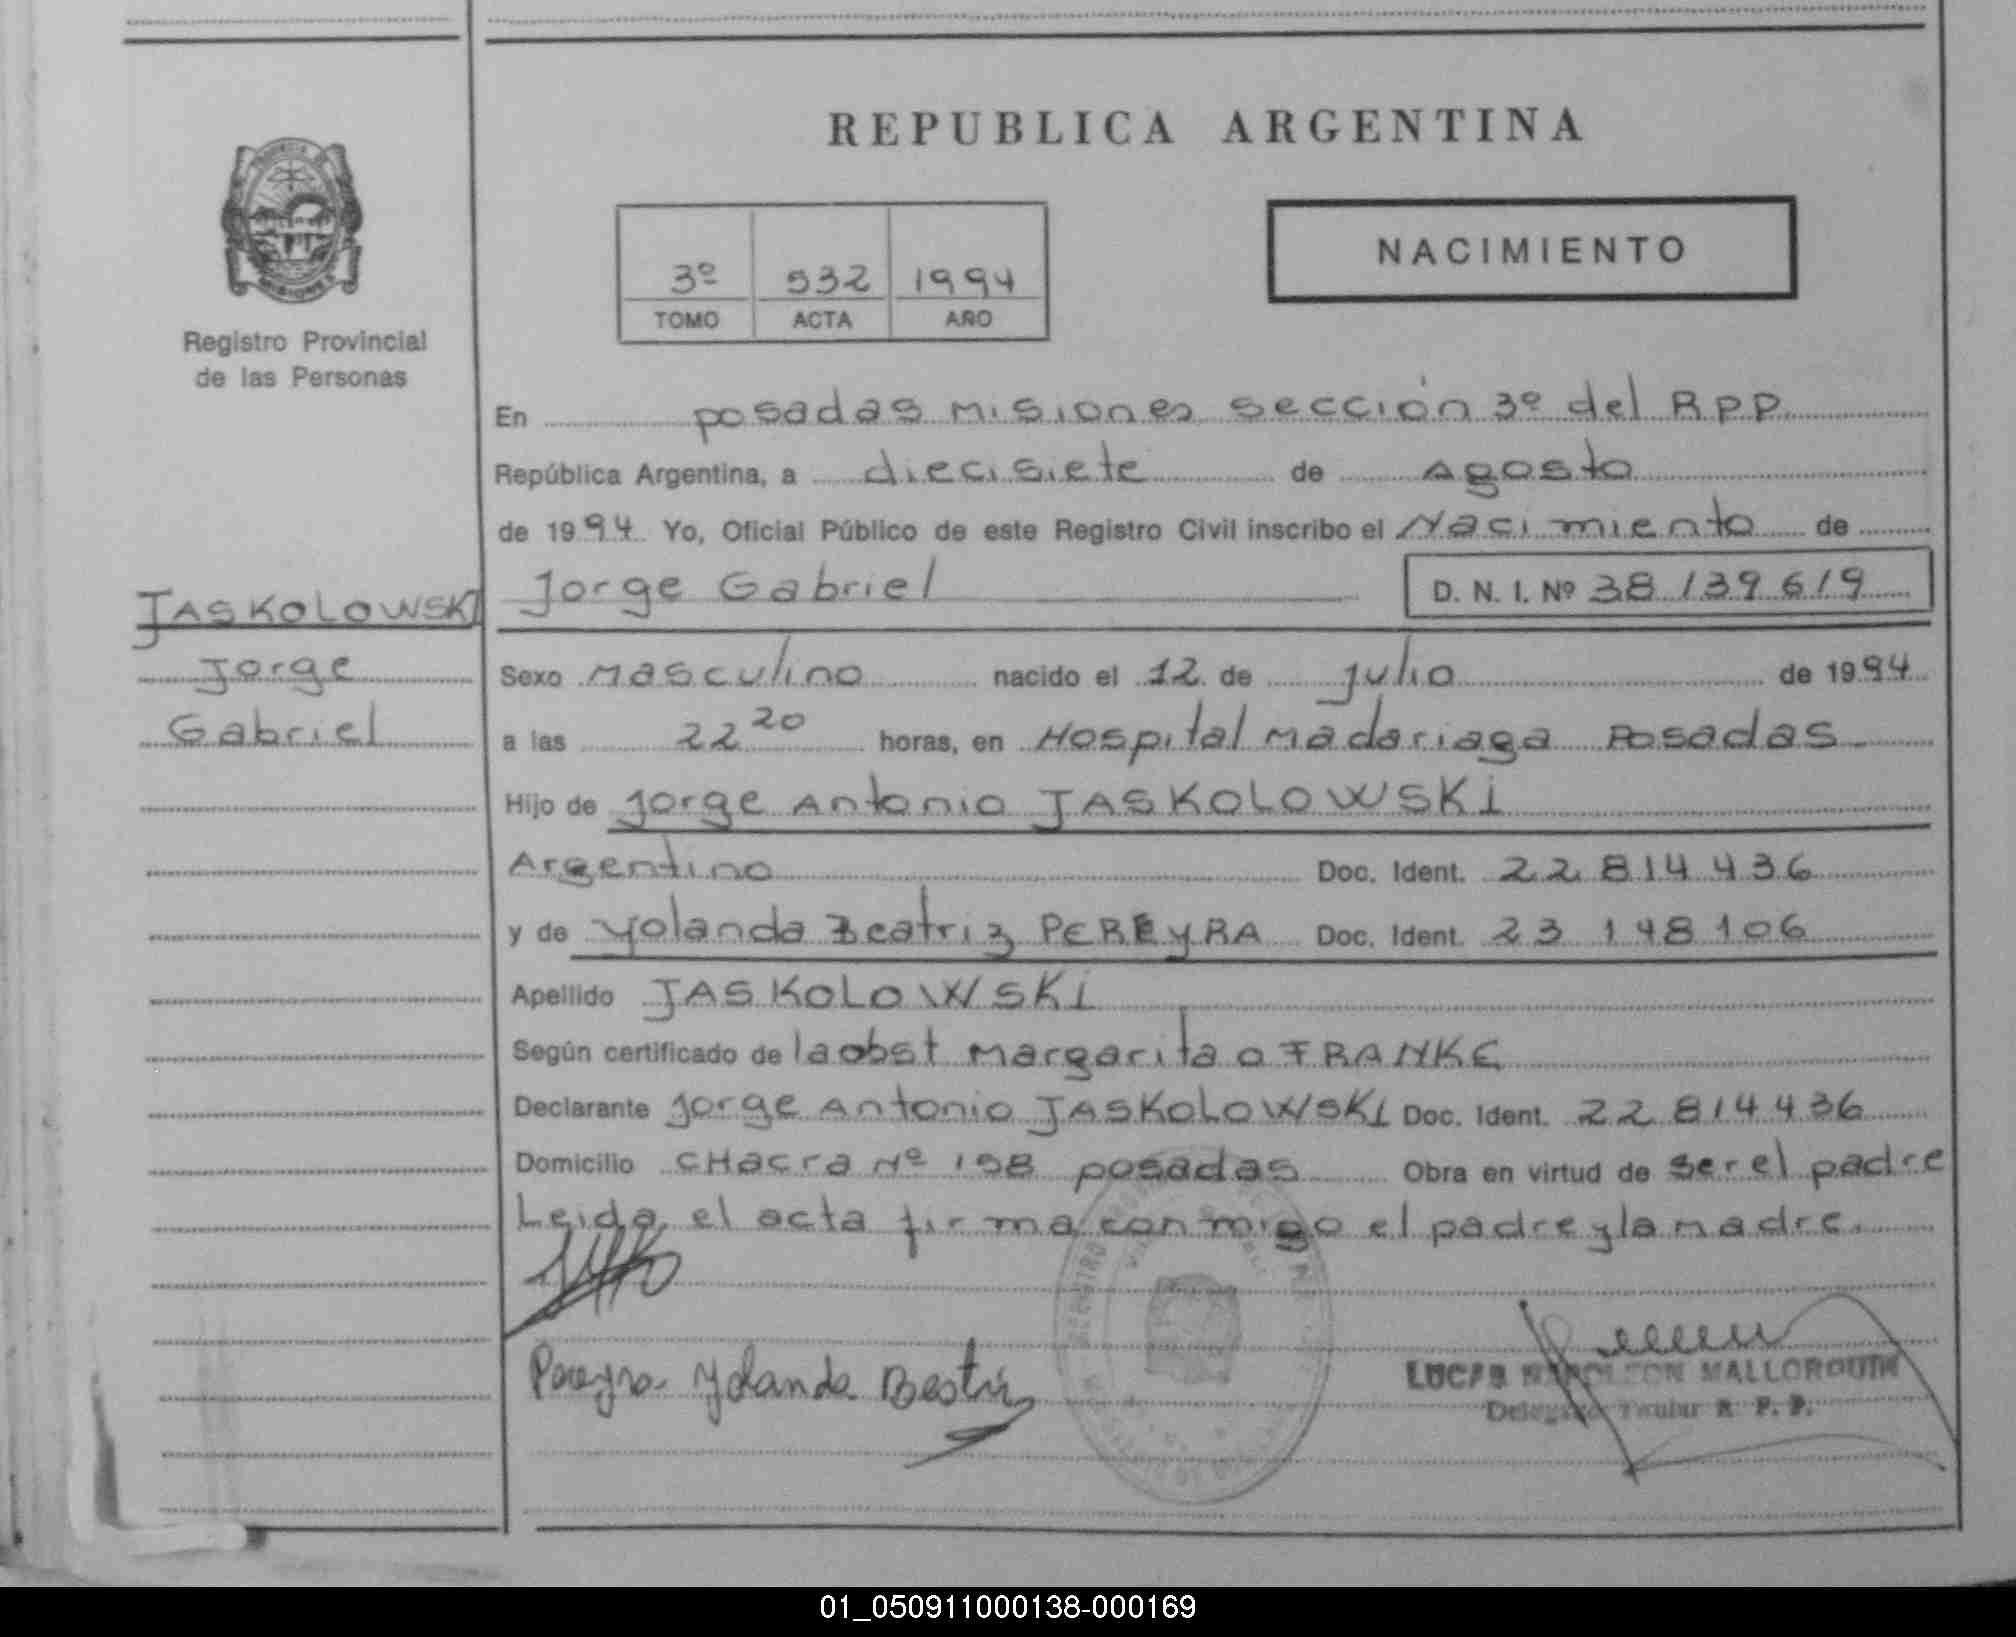 REPUBLICA ARGENTINA
NACIMIENTO
3º 532 1994
TOMO ACTA AÑO
Registro Provincial
de las Personas
En posadas misiones sección 3º del RPP
República Argentina, a diecisiete de Agosto
de 1994 Yo, Oficial Público de este Registro Civil inscribo el Nacimiento de
Jorge Gabriel D. N. I. Nº 38 139 619
JASKOLOWSKI
Jorge
Gabriel
Sexo Masculino nacido el 12 de Julio de 1994
a las 22 20 horas, en Hospital Madariaga Posadas
Hijo de Jorge Antonio JASKOLOWSKI
Argentino Doc. Ident. 22 814 436
y de Yolanda Beatriz PEREYRA Doc. Ident. 23 148 106
Apellido JASKOLOWSKI
Según certificado de la obst Margarita O FRANKE
Declarante Jorge Antonio JASKOLOWSKI Doc. Ident. 22 814 436
Domicilio CHacra Nº 158 posadas Obra en virtud de ser el padre
Leida el acta firma conmigo el padre y la madre.
Pereyra Yolanda Beatriz
LUCAS NAPOLEON MALLORQUIN
Delegado Titular R. P. P.
01_050911000138-000169